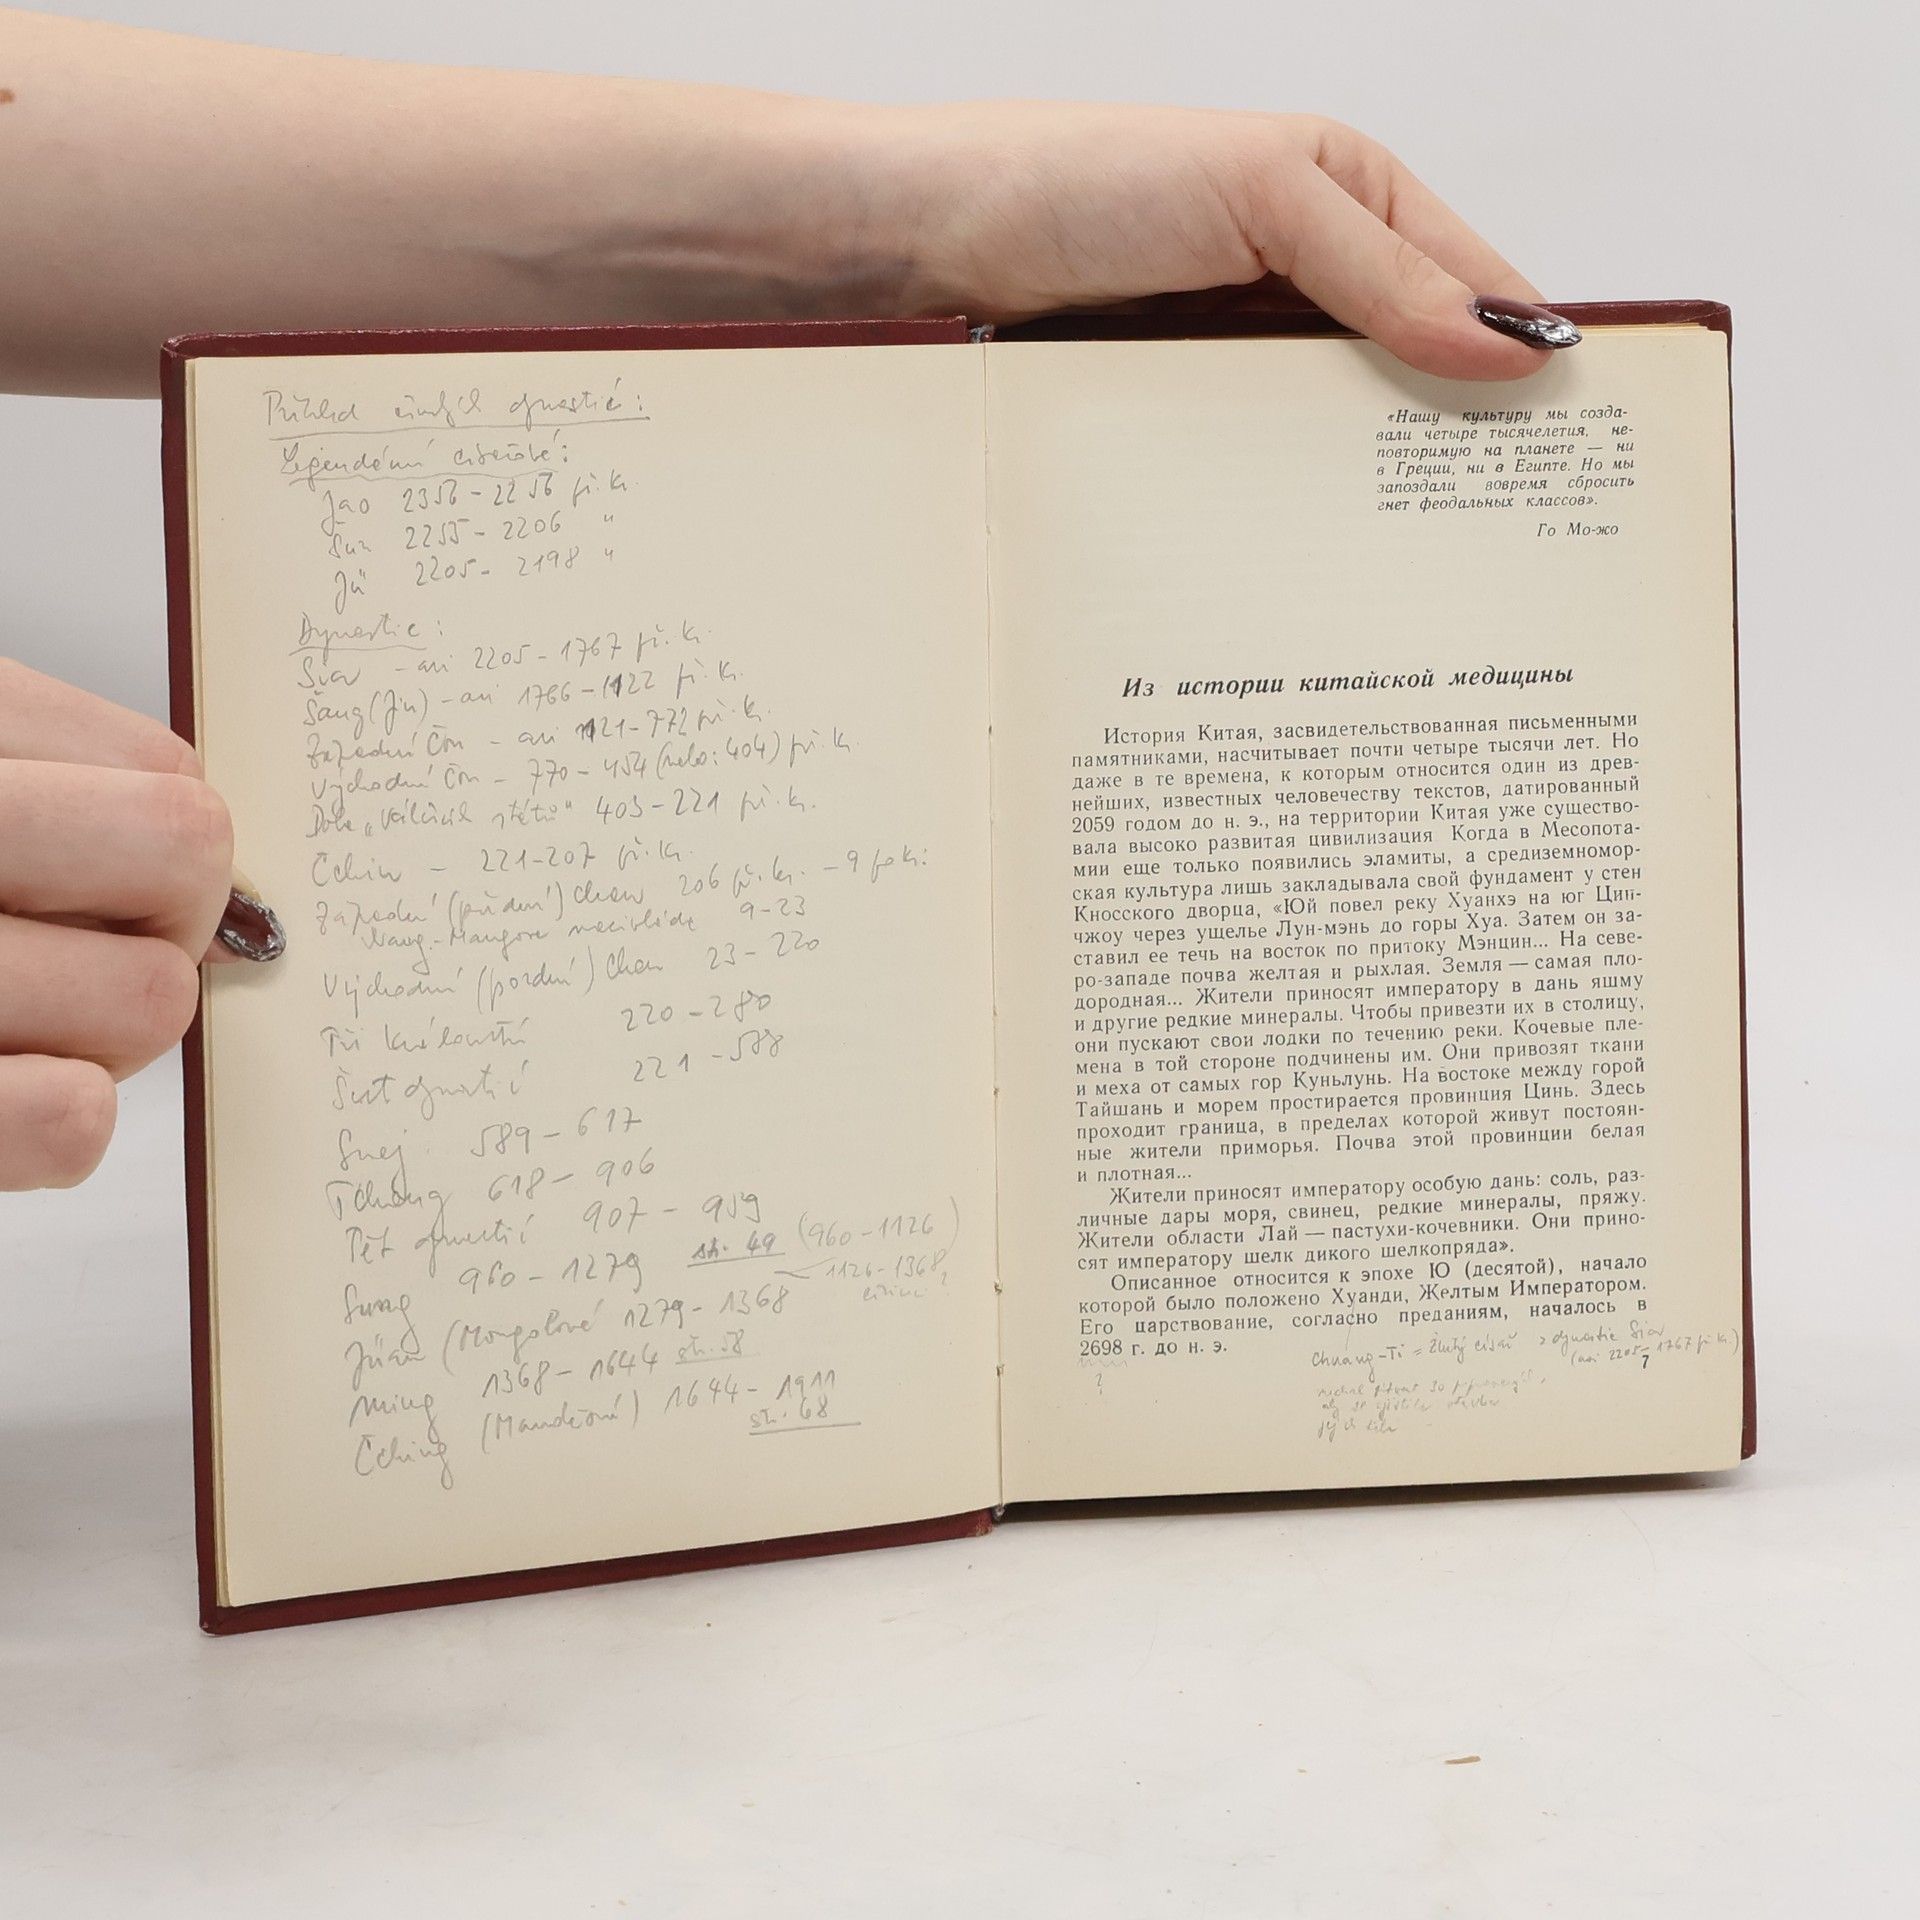 Přehled čínských dynastií:
Legendární císařové:
Jao 2356-2256 př. Kr.
Šun 2255-2206 "
Jü 2205-2198 "
Dynastie:
Sia - asi 2205-1767 př. Kr.
Šang (Jin) - asi 1766-1122 př. Kr.
Západní Čou - asi 1121-772 př. Kr.
Východní Čou - 770-454 (nebo: 404) př. Kr.
Doba „Válčících států" 403-221 př. Kr.
Čchin - 221-207 př. Kr.
Západní (přední) Chan 206 př. Kr. - 9 po Kr.
Wang-Mangova mezivláda 9-23
Východní (pozdní) Chan 23-220
Tři království 220-280
Šest dynastií 221-588
Suej 589-617
Tchang 618-906
Pět dynastií 907-959
Sung 960-1279 str. 49 (960-1126)
1126-1368
?
Jüan (Mongolové 1279-1368
Ming 1368-1644 str. 58
Čching (Mandžové) 1644-1911
str. 68
«Нашу культуру мы созда-
вали четыре тысячелетия, не-
повторимую на планете — ни
в Греции, ни в Египте. Но мы
запоздали вовремя сбросить
гнет феодальных классов».
Го Мо-жо
Из истории китайской медицины
История Китая, засвидетельствованная письменными
памятниками, насчитывает почти четыре тысячи лет. Но
даже в те времена, к которым относится один из древ-
нейших, известных человечеству текстов, датированный
2059 годом до н. э., на территории Китая уже существо-
вала высоко развитая цивилизация. Когда в Месопота-
мии еще только появились эламиты, а средиземномор-
ская культура лишь закладывала свой фундамент у стен
Кносского дворца, «Юй повел реку Хуанхэ на юг Цин-
чжоу через ущелье Лун-мэнь до горы Хуа. Затем он за-
ставил ее течь на восток по притоку Мэнцин... На севе-
ро-западе почва желтая и рыхлая. Земля — самая пло-
дородная... Жители приносят императору в дань яшму
и другие редкие минералы. Чтобы привезти их в столицу,
они пускают свои лодки по течению реки. Кочевые пле-
мена в той стороне подчинены им. Они привозят ткани
и меха от самых гор Куньлунь. На востоке между горой
Тайшань и морем простирается провинция Цинь. Здесь
проходит граница, в пределах которой живут постоян-
ные жители приморья. Почва этой провинции белая
и плотная...
Жители приносят императору особую дань: соль, раз-
личные дары моря, свинец, редкие минералы, пряжу.
Жители области Лай — пастухи-кочевники. Они прино-
сят императору шелк дикого шелкопряда».
Описанное относится к эпохе Ю (десятой), начало
которой было положено Хуанди, Желтым Императором.
Его царствование, согласно преданиям, началось в
2698 г. до н. э.
?
Chuang-Ti = Žlutý císař z dynastie Sia
(asi 2205-1767 př. Kr.)
?